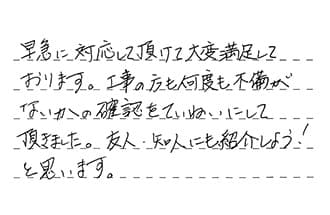 早急に対応して頂けて大変満足して
おります。工事の方も何度も不備が
ないかの確認をていねいにして
頂きました。友人・知人にも紹介しよう!
と思います。